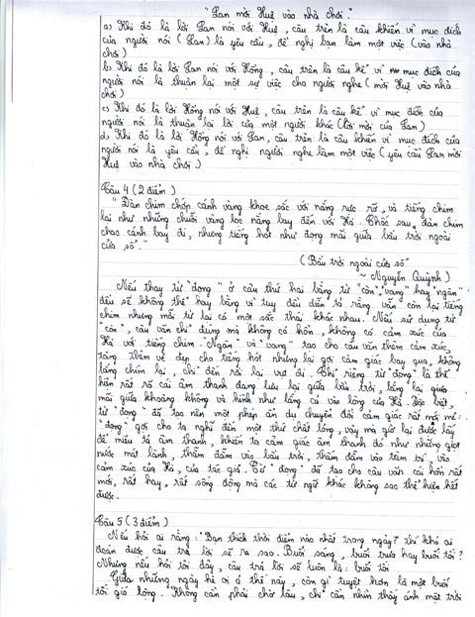 "Lan mời Huệ vào nhà chơi."
a) Khi đó là lời Lan nói với Huệ, câu trên là câu khiến vì mục đích
của người nói (Lan) là yêu cầu, đề nghị bạn làm một việc (vào nhà
chơi)
b) Khi đó là lời Lan nói với Hồng, câu trên là câu kể vì mục đích của
người nói là thuật lại một sự việc cho người nghe (mời Huệ vào nhà
chơi)
c) Khi đó là lời Hồng nói với Huệ, câu trên là câu kể vì mục đích của
người nói là thuật lại lời của một người khác (lời mời của Lan)
d) Khi đó là lời Hồng nói với Lan, câu trên là câu khiến vì mục đích của
người nói là yêu cầu, đề nghị người nghe làm một việc (yêu cầu Lan mời
Huệ vào nhà chơi)
Câu 4 (2 điểm)
"Đàn chim chớp cánh vàng khoe sắc với nắng rực rỡ, và tiếng chim
lại như những chuỗi vàng lọc nắng bay đến với Hà. Chốc sau, đàn chim
chao cánh bay đi, nhưng tiếng hót như đọng mãi giữa bầu trời ngoài
cửa sổ."
(Bầu trời ngoài cửa sổ"
~ Nguyễn Quỳnh)
Nếu thay từ "đọng" ở câu thứ hai bằng từ "còn", vang" hay "ngân"
đều sẽ không thể hay bằng vì tuy đều diễn tả rằng vẫn còn lại tiếng
chim nhưng mỗi từ lại có một sắc thái khác nhau. Nếu sử dụng từ
"còn", câu văn chỉ đúng mà không có hồn, không có cảm xúc của
Hà với tiếng chim. "Ngân" và "vang" tạo cho câu văn thêm cảm xúc,
tăng thêm vẻ đẹp cho tiếng hót nhưng lại gợi cảm giác bay qua, không
lắng chìm lại, chỉ đến rồi lại vụt đi. Chỉ riêng từ "đọng" là thể
hiện rất rõ cái âm thanh đang lưu lại giữa bầu trời, lắng lại giữa
mãi giữa khoảng không và hình như lắng cả vào lòng của Hà. Đặc biệt,
từ "đọng" đã tạo nên một phép ẩn dụ chuyển đổi cảm giác rất mới mẻ:
"đọng" gợi cho ta nghĩ đến một thứ chất lỏng, vậy mà giờ lại được lấy
để miêu tả âm thanh, khiến ta cảm giác âm thanh đó như những giọt
nước mát lành, thấm đẫm vào bầu trời, thấm đẫm vào tâm trí, vào
cảm xúc của Hà, của tác giả. Từ "đọng" đã tạo cho câu văn cái hồn rất
mới, rất hay, rất sống động mà các từ ngữ khác không sao thể hiện hết
được.
Câu 5 (3 điểm)
Nếu hỏi ai rằng: "Bạn thích thời điểm nào nhất trong ngày? thì khó ai
đoán được câu trả lời sẽ ra sao. Buổi sáng, buổi trưa hay buổi tối?
Nhưng nếu hỏi tôi đây, câu trả lời sẽ luôn là: buổi tối
Giữa những ngày hè oi ả thế này, còn gì tuyệt hơn là một buổi
tối gió lộng. Không cần phải chờ lâu, chỉ cần nhìn thấy ánh mặt trời